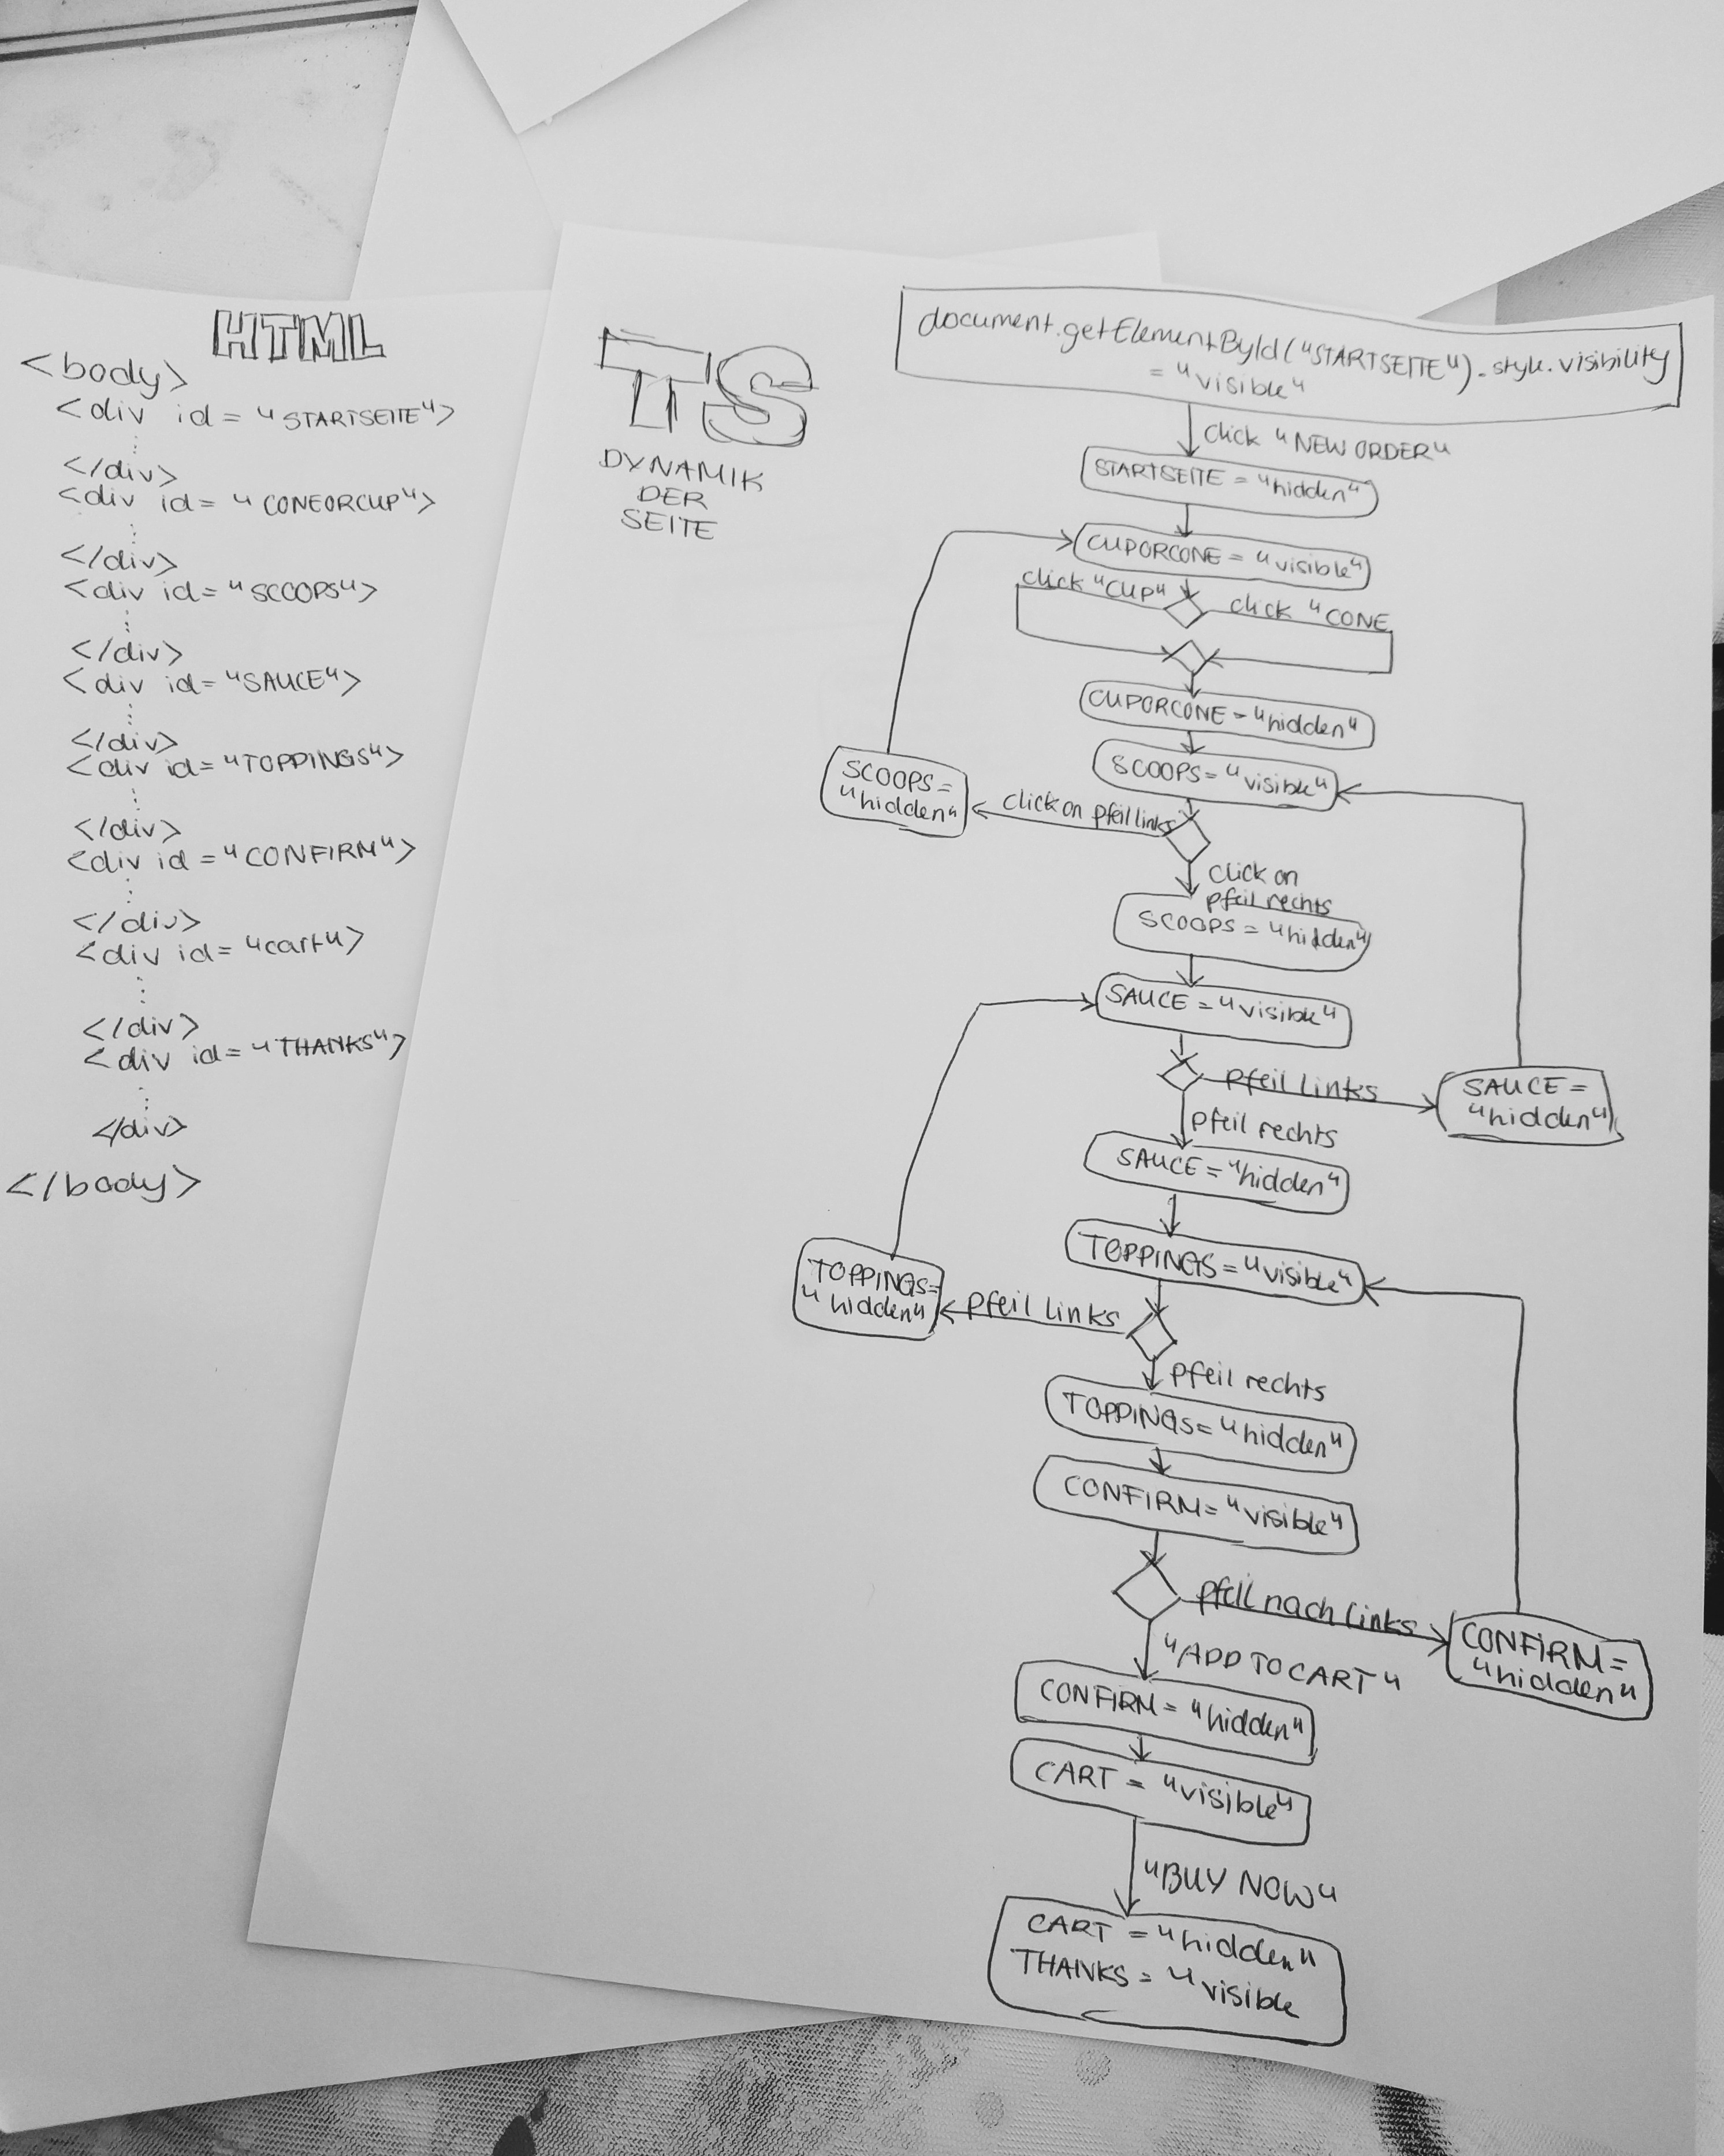 HTML
<body>
<div id = "STARTSEITE">
</div>
<div id = "CONEORCUP">
</div>
<div id = "SCOOPS">
</div>
<div id = "SAUCE">
</div>
<div id = "TOPPINGS">
</div>
<div id = "CONFIRM">
</div>
<div id = "cart">
</div>
<div id = "THANKS">
</div>
</body>
TS
DYNAMIK
DER
SEITE
document.getElementById("STARTSEITE").style.visibility
= "visible"
click "NEW ORDER"
STARTSEITE = "hidden"
CUPORCONE = "visible"
click "CUP"
click "CONE
CUPORCONE = "hidden"
SCOOPS = "visible"
SCOOPS =
"hidden"
click on pfeil links
click on
pfeil rechts
SCOOPS = "hidden"
SAUCE = "visible"
pfeil links
SAUCE =
"hidden"
pfeil rechts
SAUCE = "hidden"
TOPPINGS = "visible"
TOPPINGS =
"hidden"
pfeil links
pfeil rechts
TOPPINGS = "hidden"
CONFIRM = "visible"
pfeil nach links
CONFIRM =
"hidden"
"ADD TO CART"
CONFIRM = "hidden"
CART = "visible"
"BUY NOW"
CART = "hidden"
THANKS = "visible